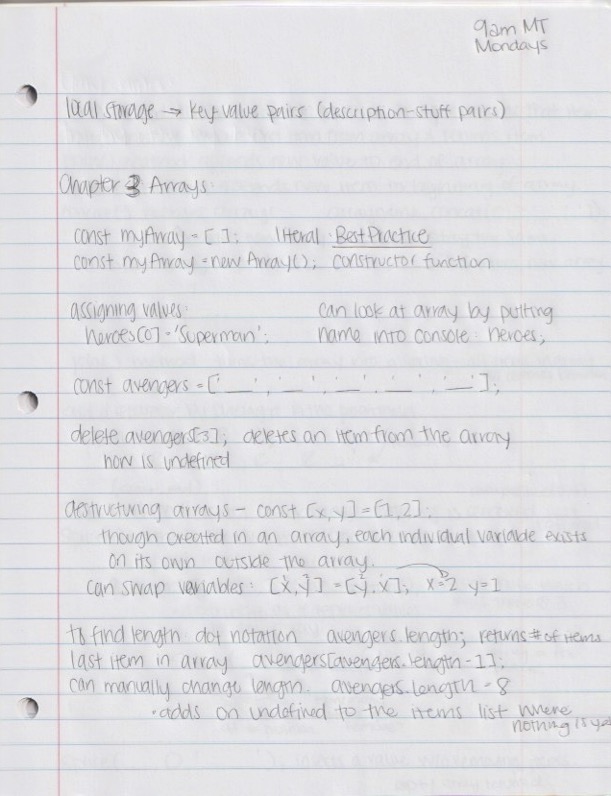 9am MT
Mondays
local storage → key value pairs (description-stuff pairs)
Chapter 3 Arrays
const myArray = [ ]; literal Best Practice
const myArray = new Array(); constructor function
assigning values: can look at array by putting
heroes[0] = 'Superman'; name into console: heroes;
const avengers = ['__', '__', '__', '__', '__'];
delete avengers[3]; deletes an item from the array
now is undefined
destructuring arrays - const [x,y] = [1,2];
though created in an array, each individual variable exists
on its own outside the array.
can swap variables: [x,y] = [y,x]; x=2 y=1
to find length dot notation avengers.length; returns # of items
last item in array avengers[avengers.length - 1];
can manually change length. avengers.length = 8
• adds on undefined to the items list where
nothing is